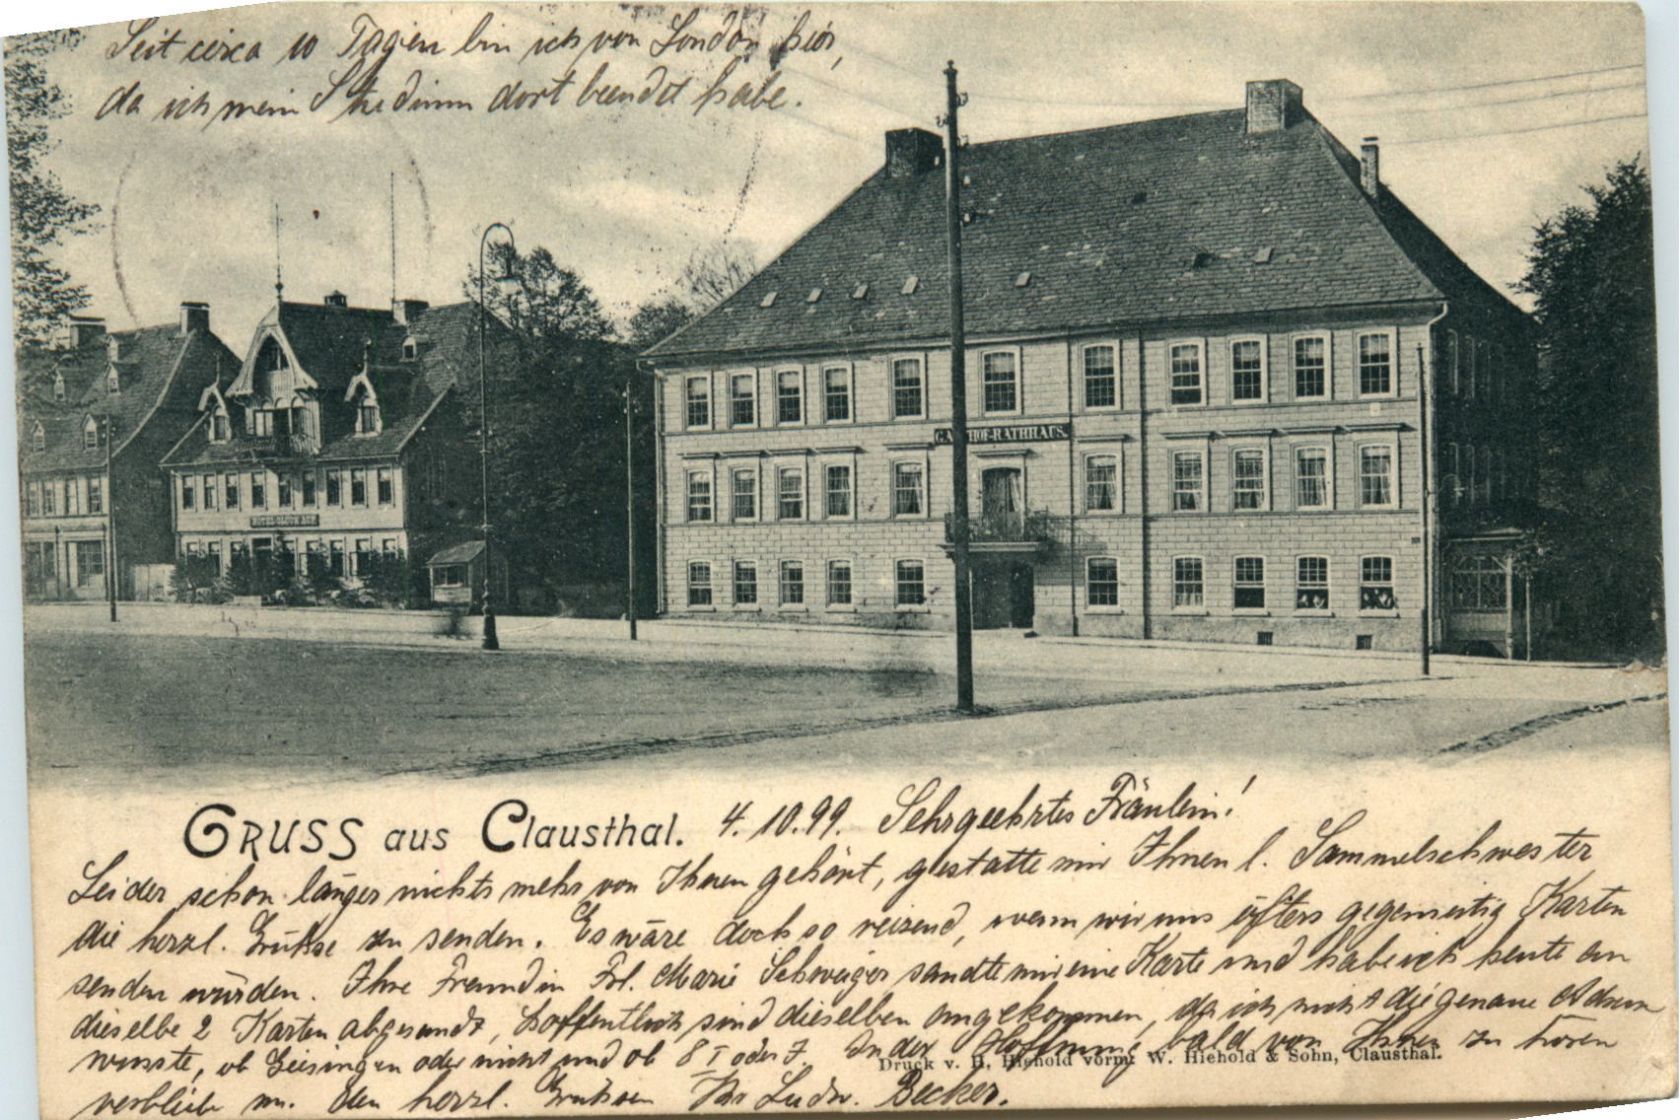 Seit circa 10 Tagen bin ich von London hier,
da ich mein Studium dort beendet habe.
GASTHOF-RATHHAUS.
GRUSS aus Clausthal. 4.10.99. Sehrgeehrtes Fräulein!
Leider schon länger nichts mehr von Ihnen gehört, gestatte mir Ihnen l. Sammelschwester
die herzl. Grüsse zu senden. Es wäre doch so reizend, wenn wir uns öfters gegenseitig Karten
senden würden. Ihre Freundin Frl. Marie Schweiger sandte mir eine Karte und habe ich heute an
dieselbe 2 Karten abgesandt, hoffentlich sind dieselben angekommen, da ich nicht die genaue Adresse
wusste, ob Geisingen oder nicht und ob 8 I oder 7. In der Hoffnung bald von Ihnen zu hören
Druck v. H. Hiehold vorm. W. Hiehold & Sohn, Clausthal.
verbleibe m. den herzl. Grüssen Ihr Ludw. Becker.